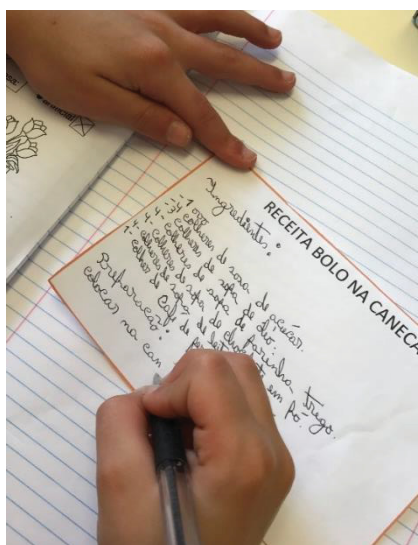 RECEITA BOLO NA CANECA
Ingredientes:
1 ovo
colheres de sopa de açúcar.
colheres de sopa de óleo.
colheres de sopa de farinha trigo.
colheres de sopa de chocolate em pó.
colheres de sopa de leite
colher de café de
Preparação:
colocar na can